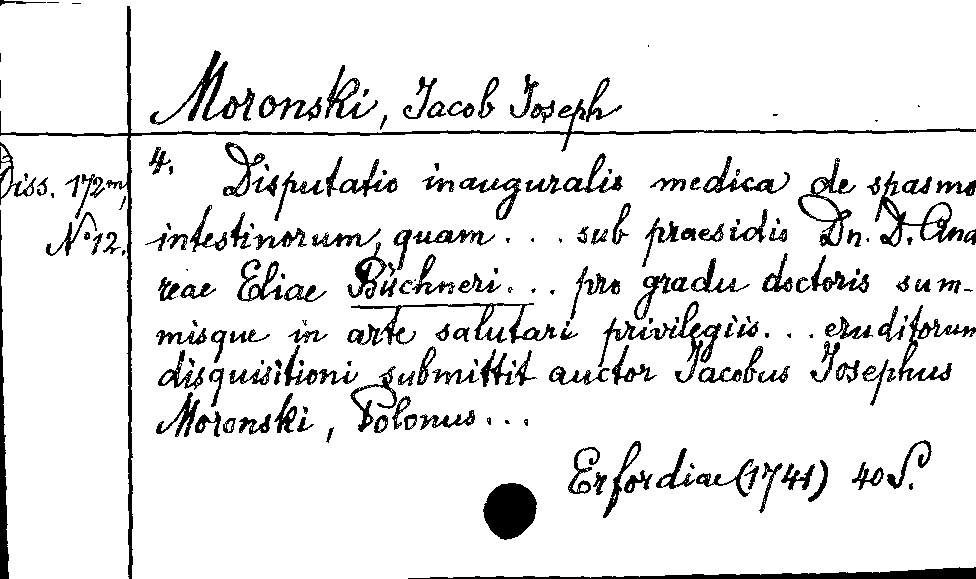 Moronski, Jacob Joseph
4. Disputatio inauguralis medica de spasmo
Diss. 172m,
No 12.
intestinorum, quam ... sub praesidis Dn. D. And
reae Eliae Büchneri ... pro gradu doctoris sum-
misque in arte salutari privilegiis ... eruditorum
disquisitioni submittit auctor Jacobus Josephus
Moronski, Polonus ...
Erfordiae (1741) 40 S.